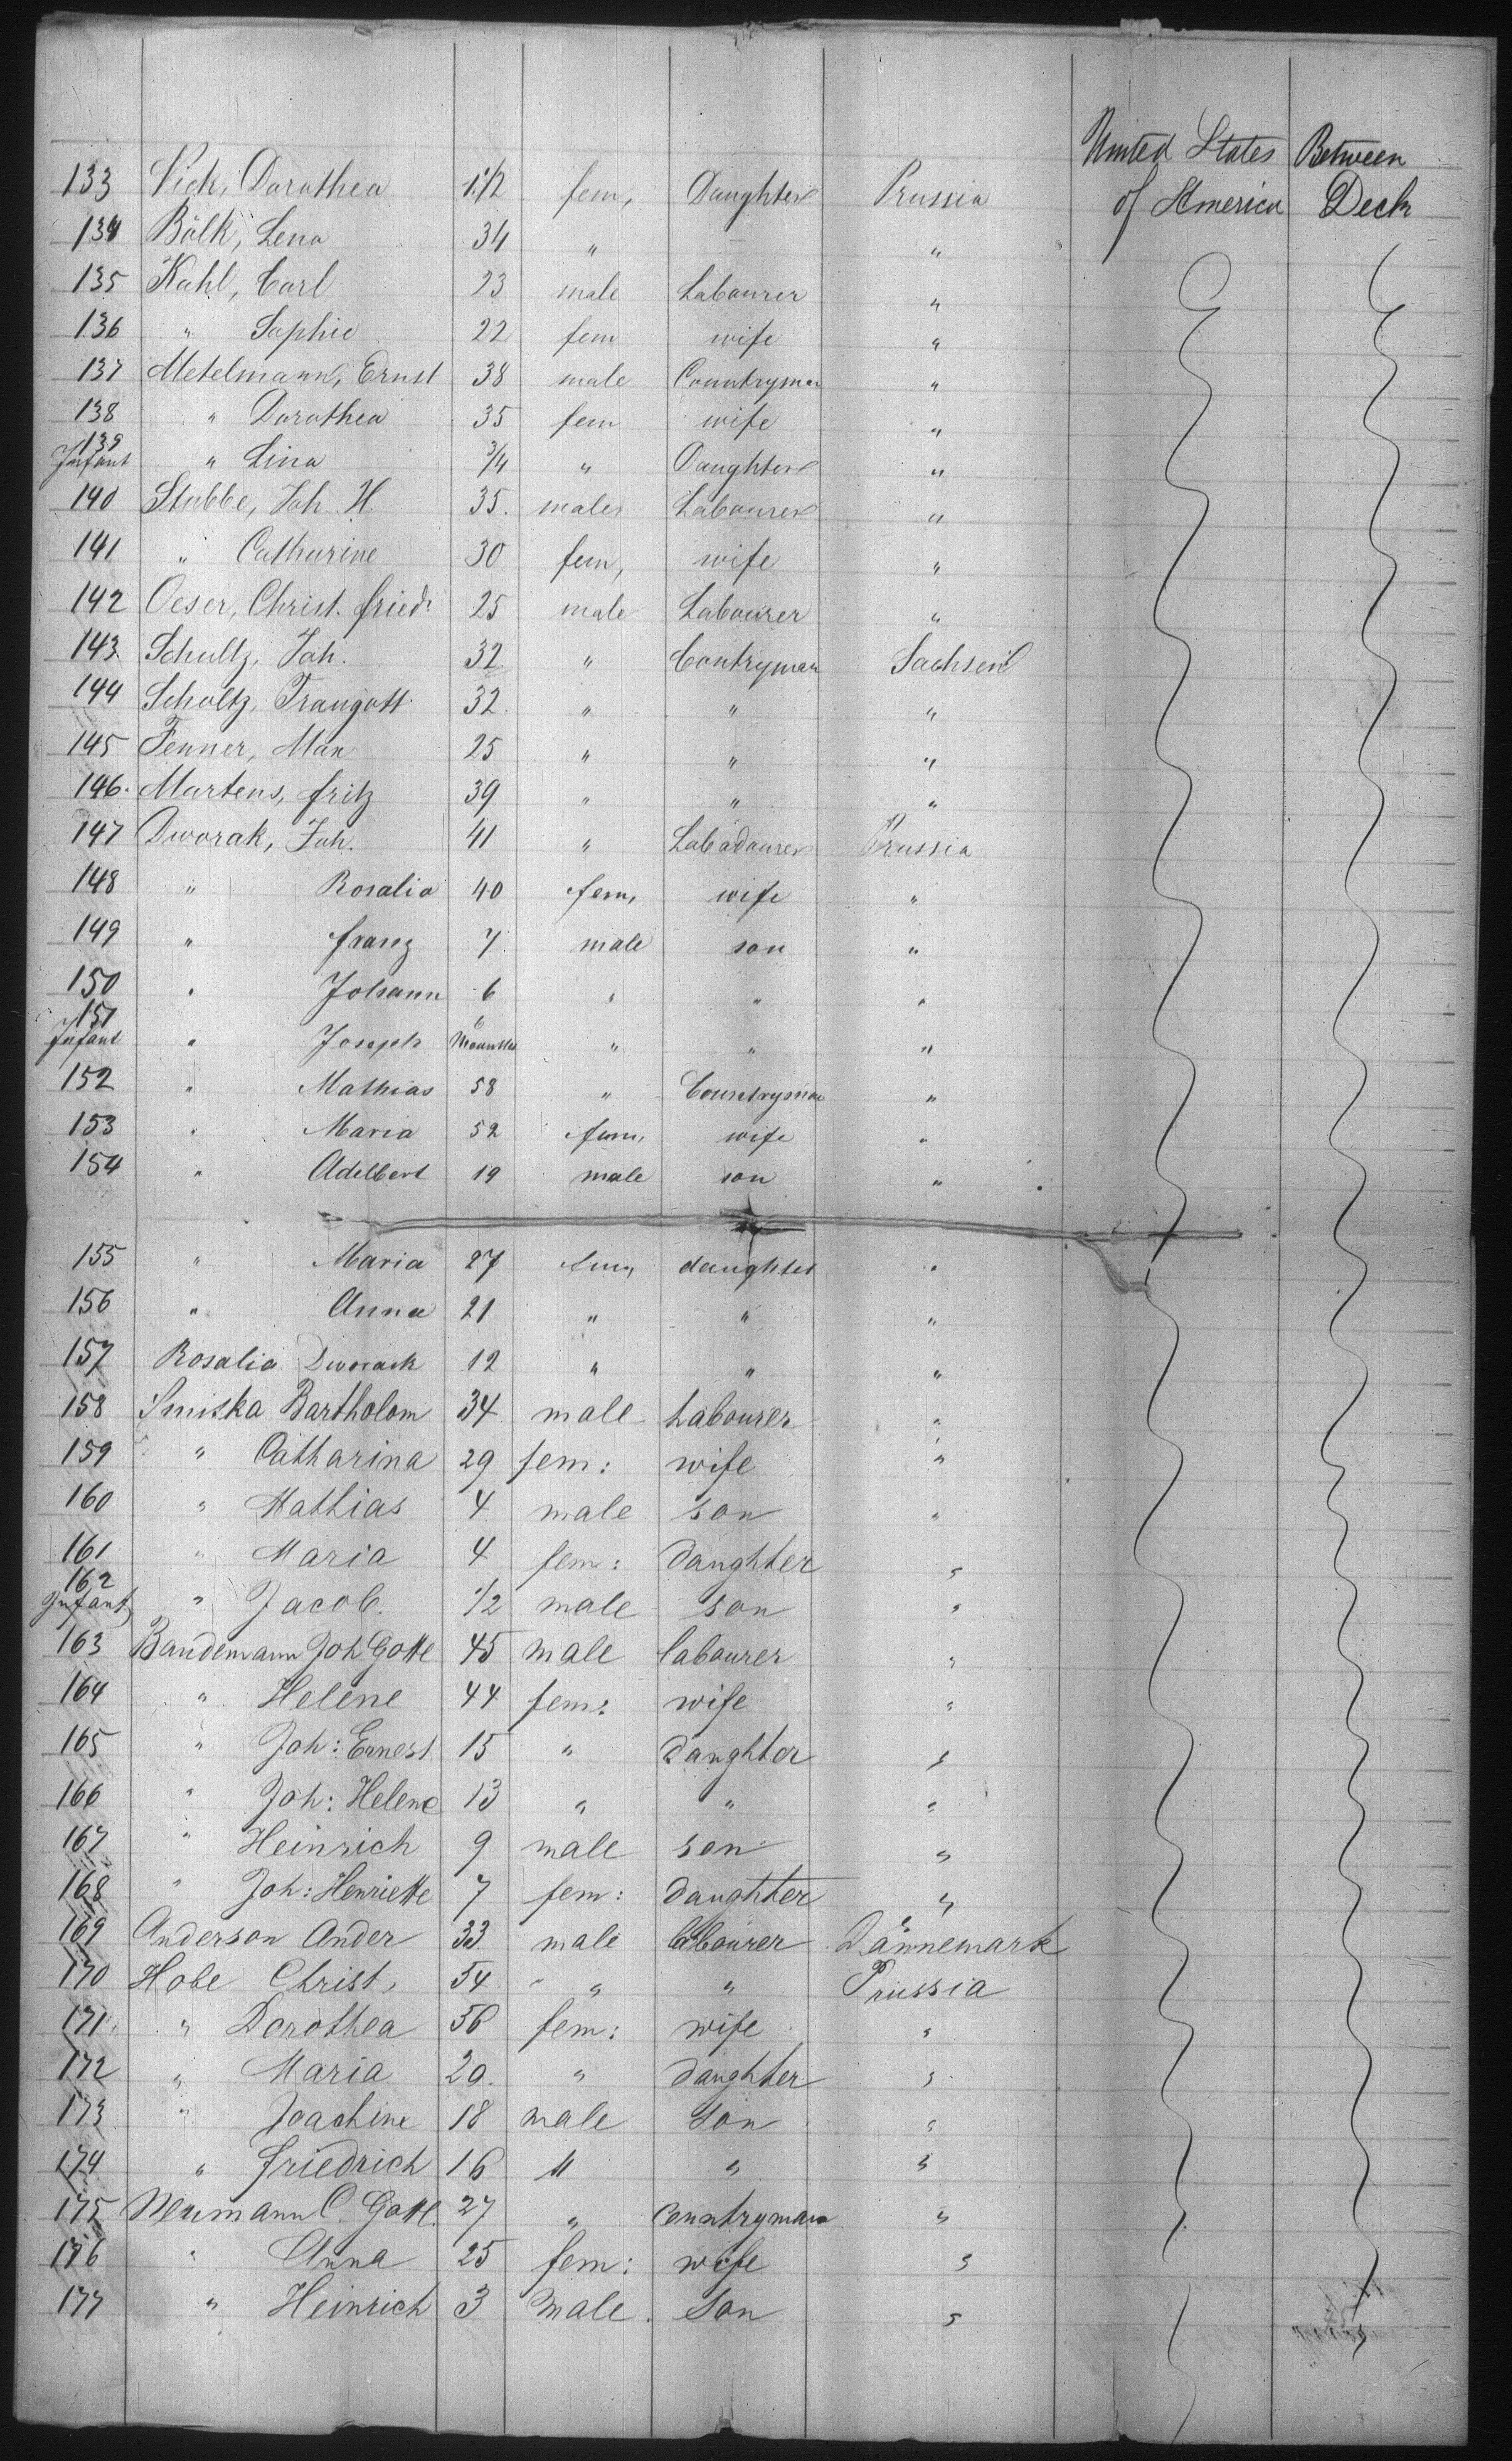 United States Between
133 Vick, Dorothea 1 1/2 fem, Daughter Prussia of America Deck
134 Bölk, Lena 34 " "
135 Kahl, Carl 23 male Labourer "
136 " Sophie 22 fem wife "
137 Metelmann, Ernst 38 male Countryman "
138 " Dorothea 35 fem wife "
139 Infant " Lina 3/4 " Daughter "
140 Stubbe, Joh. H. 35. male Labourer "
141 " Catharine 30 fem, wife "
142 Oeser, Christ. fried. 25 male Labourer "
143 Schultz, Joh. 32 " Contryman Sachsen
144 Scholtz, Traugott 32. " " "
145 Fenner, Max 25 " " "
146. Martens, fritz 39 " " "
147 Dworak, Joh. 41 " Labadourer Prussia
148 " Rosalia 40 fem, wife "
149 " franz 7 male son "
150 " Johann 6 " " "
151 Infant " Joseph 6 Months " " "
152 " Mathias 58 " Countryman "
153 " Maria 52 fem, wife "
154 " Adelbert 19 male son "
155 " Maria 27 fem, daughter "
156 " Anna 21 " " "
157 Rosalia Dworack 12 " " "
158 Smiska Bartholom 34 male Labourer "
159 " Catharina 29 fem: wife "
160 " Mathias 4 male son "
161 " Maria 4 fem: daughter "
162 Infant " Jacob. 1/2 male son "
163 Bandemann Joh Gottl. 45 male labourer "
164 " Helene 44 fem: wife "
165 " Joh: Ernest. 15 " daughter "
166 " Joh: Helene 13 " " "
167 " Heinrich 9 male son "
168 " Joh: Henriette 7 fem: daughter "
169 Anderson Ander 33 male labourer Dännemark
170 Hobe Christ, 54 " " Prussia
171 " Dorothea 56 fem: wife "
172 " Maria 20. " daughter "
173 " Joachine 18 male son "
174 " friedrich 16 " " "
175 Neumann C. Gottl. 27 " Countryman "
176 " Anna 25 fem: wife "
177 " Heinrich 3 male. son "